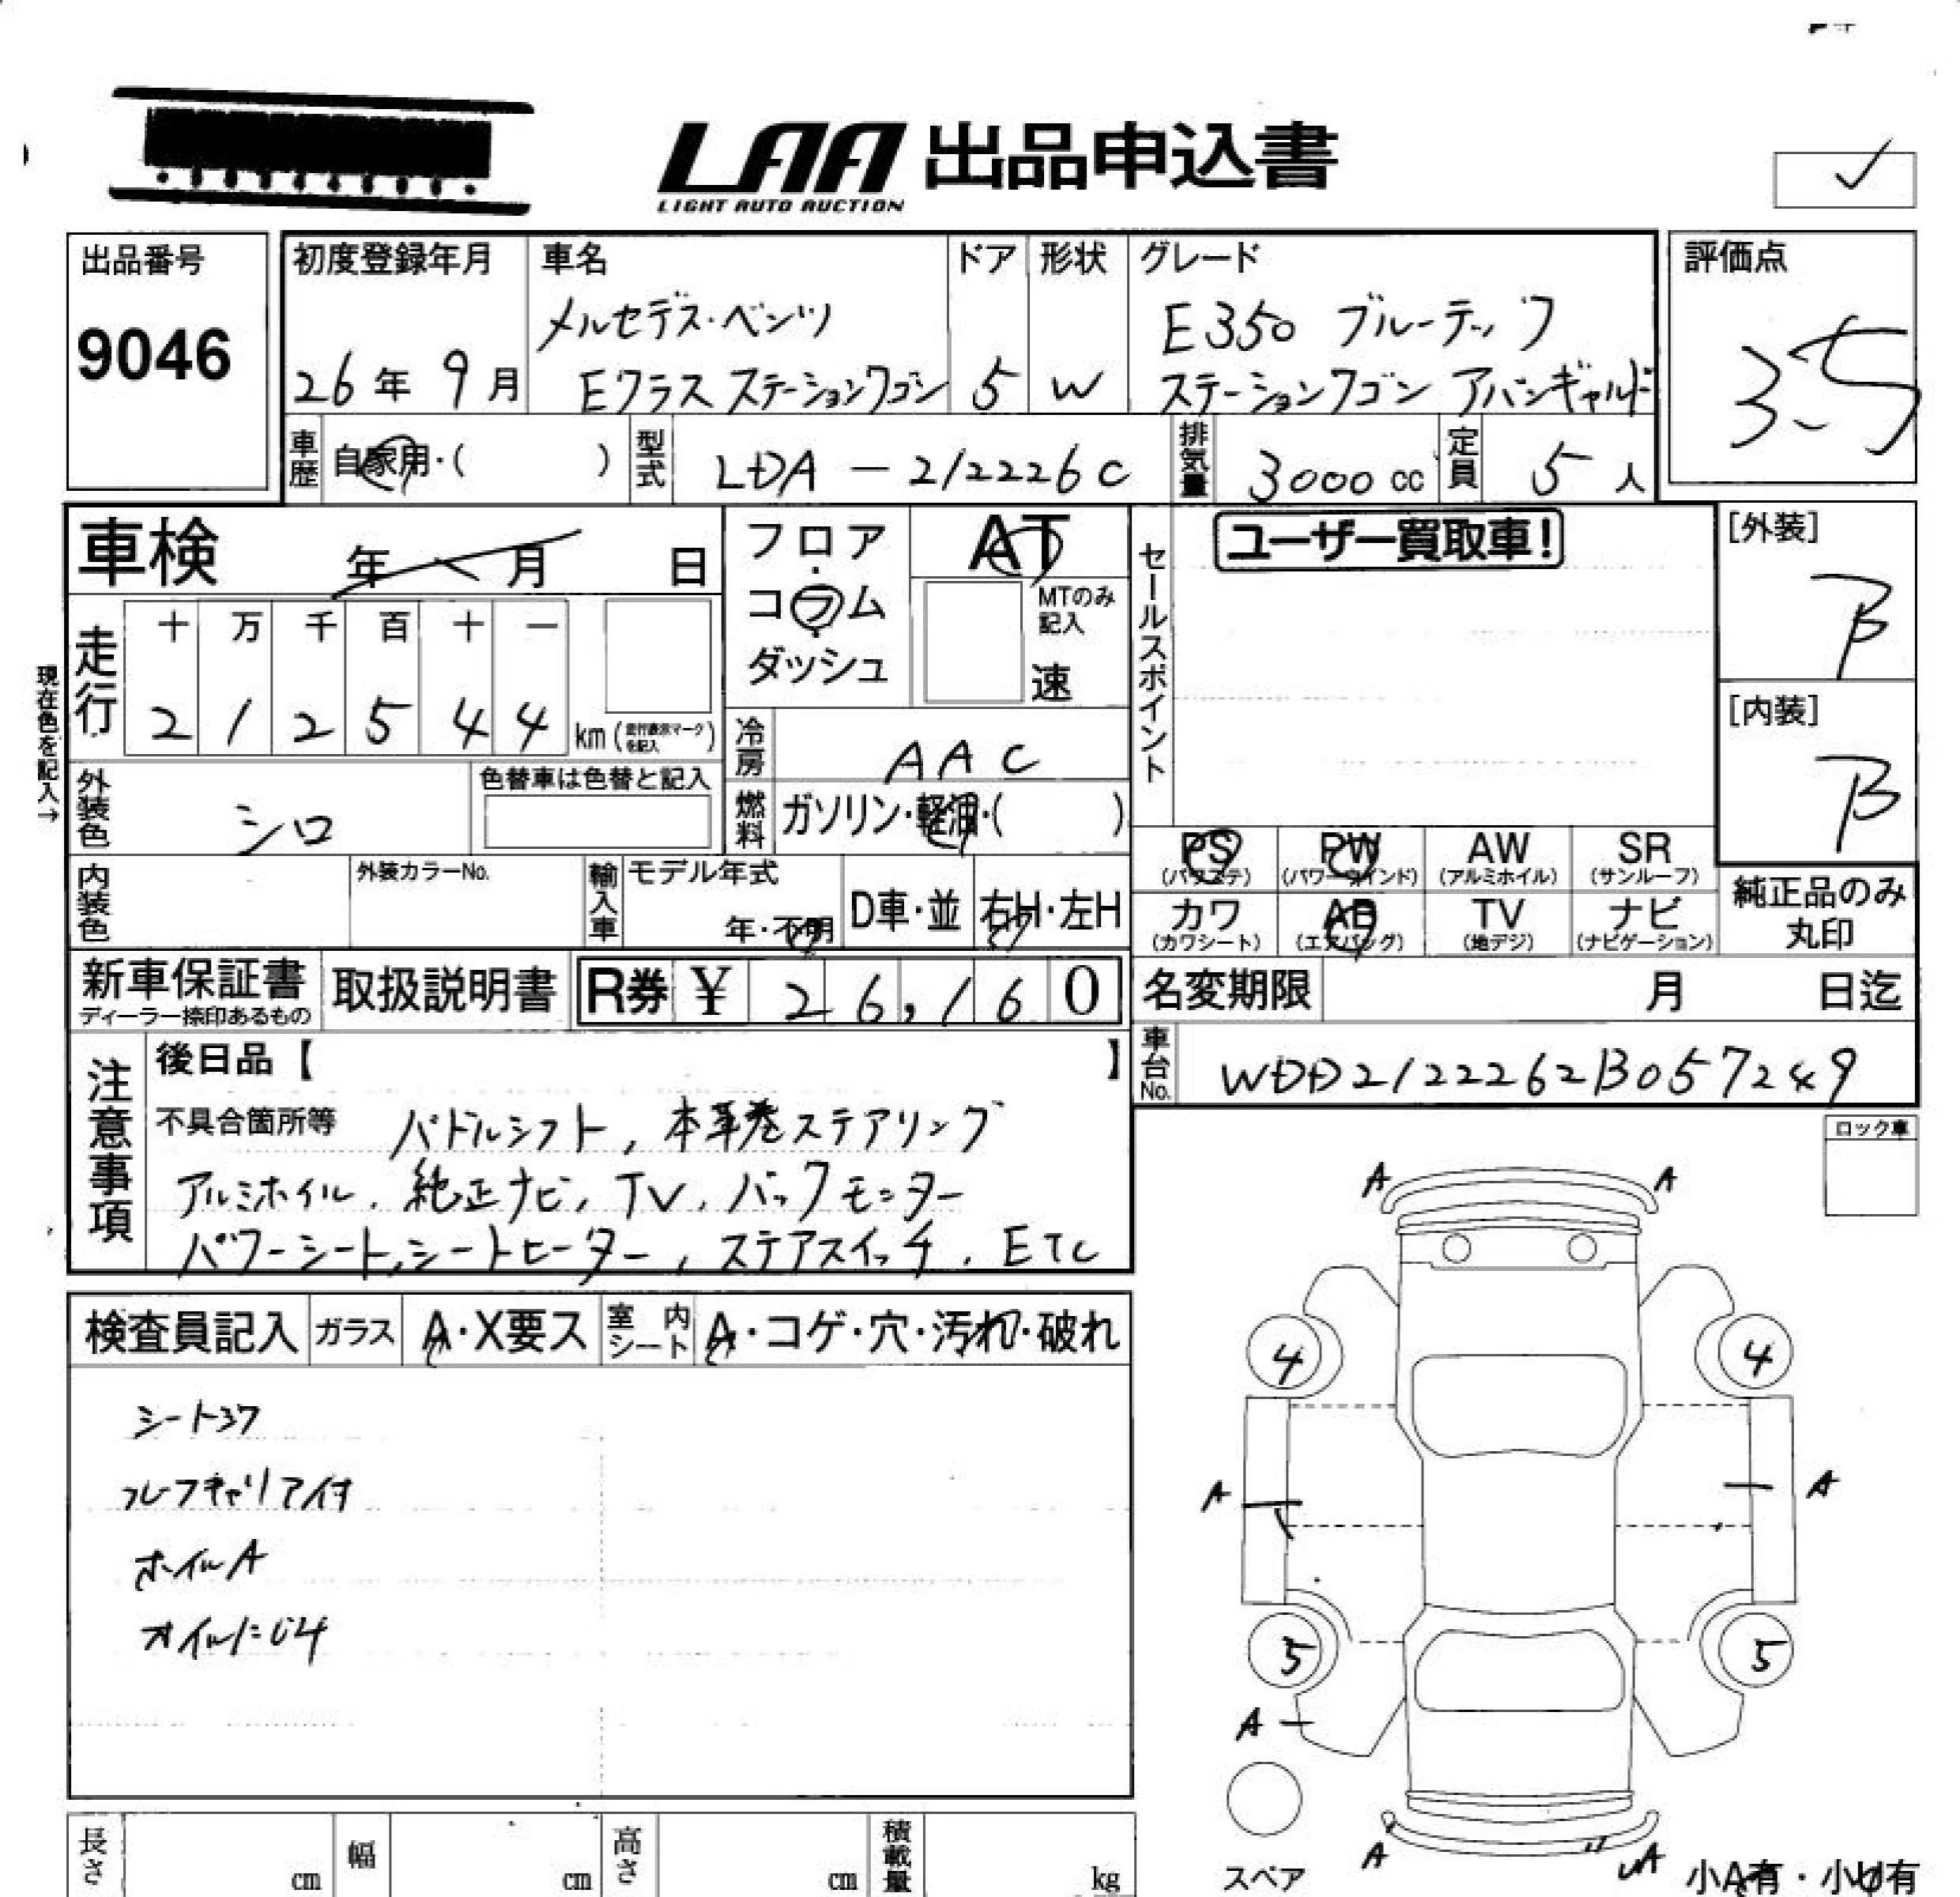 LAA 出品申込書
LIGHT AUTO AUCTION
出品番号
9046
初度登録年月
26年 9月
車名
メルセデス・ベンツ
Eクラス ステーションワゴン
ドア
5
形状
W
グレード
E350 ブルーテック
ステーションワゴン アバンギャルド
評価点
3.5
車歴
自家用・( )
型式
LDA-212226C
排気量
3000 cc
定員
5 人
車検 年 月 日
走行
十 万 千 百 十 一
2 1 2 5 4 4 km (走行表示マークを記入)
現在色を記入→
外装色
シロ
色替車は色替と記入
内装色
外装カラーNo.
フロア
コラム
ダッシュ
AT
MTのみ
記入
速
冷房
AAC
燃料
ガソリン・軽油・( )
輸入車
モデル年式
年・不明
D車・並
右H・左H
セールスポイント
ユーザー買取車!
[外装]
B
[内装]
B
PS
(パワステ)
PW
(パワーウインド)
AW
(アルミホイル)
SR
(サンルーフ)
カワ
(カワシート)
AB
(エアバッグ)
TV
(地デジ)
ナビ
(ナビゲーション)
純正品のみ
丸印
新車保証書
ディーラー捺印あるもの
取扱説明書
R券 ¥ 26,160
名変期限 月 日迄
車台No.
WDD2122262B057249
注意事項
後日品【 】
不具合箇所等 パドルシフト, 本革巻ステアリング
アルミホイル, 純正ナビ, TV, バックモニター
パワーシート, シートヒーター, ステアスイッチ, ETC
ロック車
検査員記入
ガラス
A・X要ス
室内
シート
A・コゲ・穴・汚れ・破れ
シートスワ
ルーフキャリア付
ホイルA
オイルにじみ
A A
4 4
A A
5 5
A
スペア
A A
小A有・小U有
長さ cm
幅 cm
高さ cm
積載量 kg